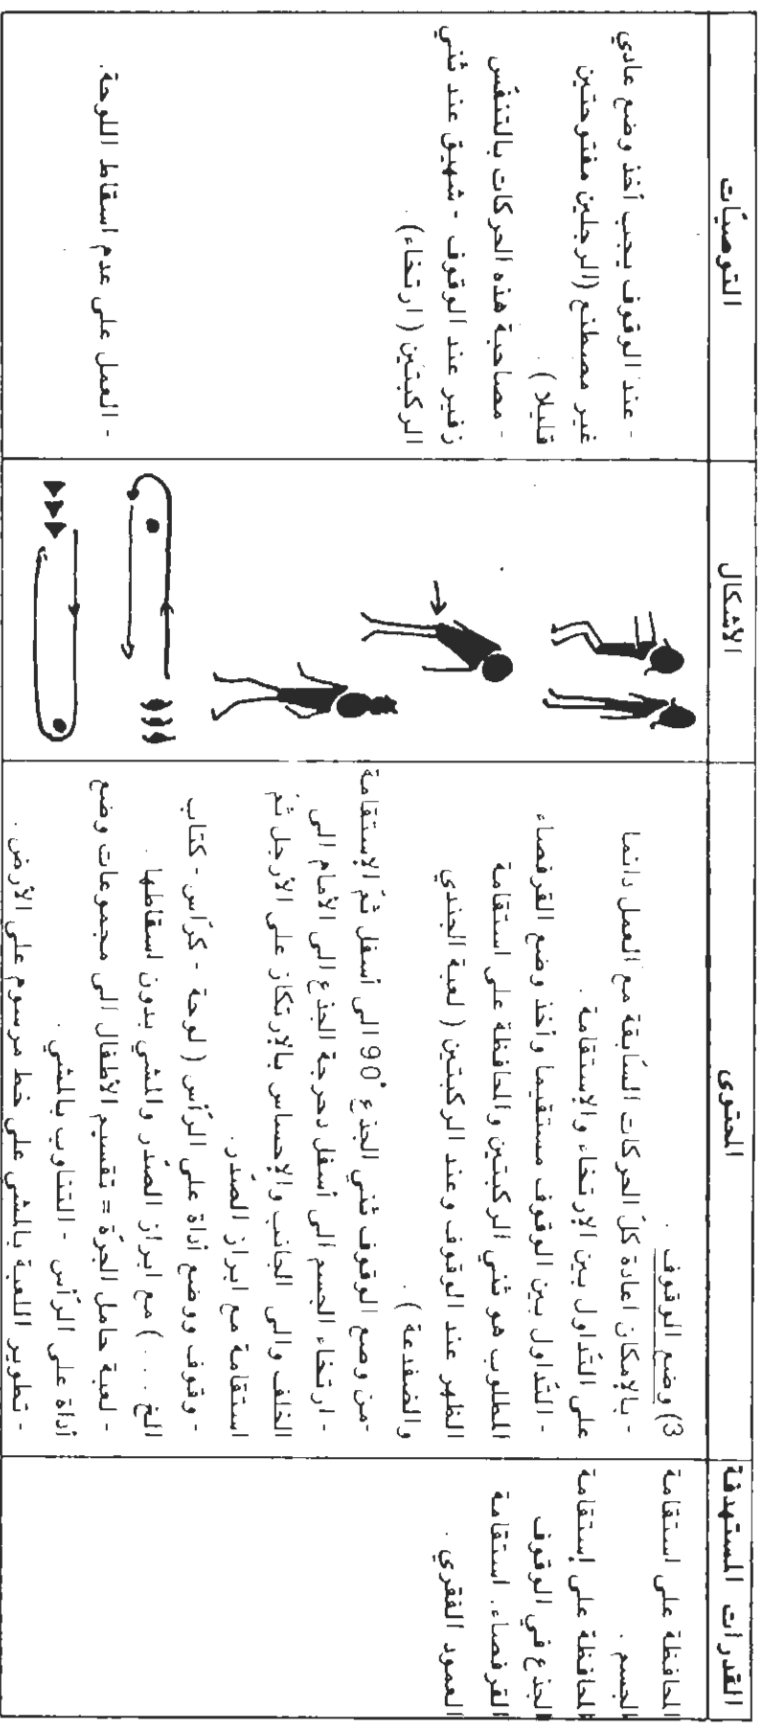 القدرات المستهدفة
المحافظة على استقامة
الجسم .
المحافظة على إستقامة
الجذع في الوقوف
القرفصاء. استقامة
العمود الفقري .
المحتوى
3) وضع الوقوف .
- بالإمكان اعادة كلّ الحركات السّابقة مع العمل دائما
على التّداول بين الإرتخاء والإستقامة .
- التّداول بين الوقوف مستقيما وأخذ وضع القرفصاء
المطلوب هو ثني الركبتين والمحافظة على استقامة
الظهر عند الوقوف وعند الركبتين ( لعبة الجندي
والضفدعة ) .
-من وضع الوقوف ثني الجذع 90° الى أسفل ثمّ الإستقامة
- ارتخاء الجسم الى أسفل دحرجة الجذع الى الأمام الى
الخلف والى الجانب والإحساس بالإرتكاز على الأرجل ثمّ
استقامة مع ابراز الصّدر .
- وقوف ووضع أداة على الرّأس ( لوحة - كرّاس - كتاب
الخ . . . ) مع ابراز الصّدر والمشي بدون اسقاطها .
- لعبة حامل الجرّة = تقسيم الأطفال الى مجموعات وضع
أداة على الرّأس - التناوب بالمشي .
- تطوير اللعبة بالمشي على خط مرسوم على الأرض .
الأشكال
التوصيّات
- عند الوقوف يجب أخذ وضع عادي
غير مصطنع (الرجلين مفتوحتين
قليلا ) .
- مصاحبة هذه الحركات بالتنفّس
زفير عند الوقوف - شهيق عند ثني
الركبتين ( ارتخاء) .
- العمل على عدم اسقاط اللوحة.